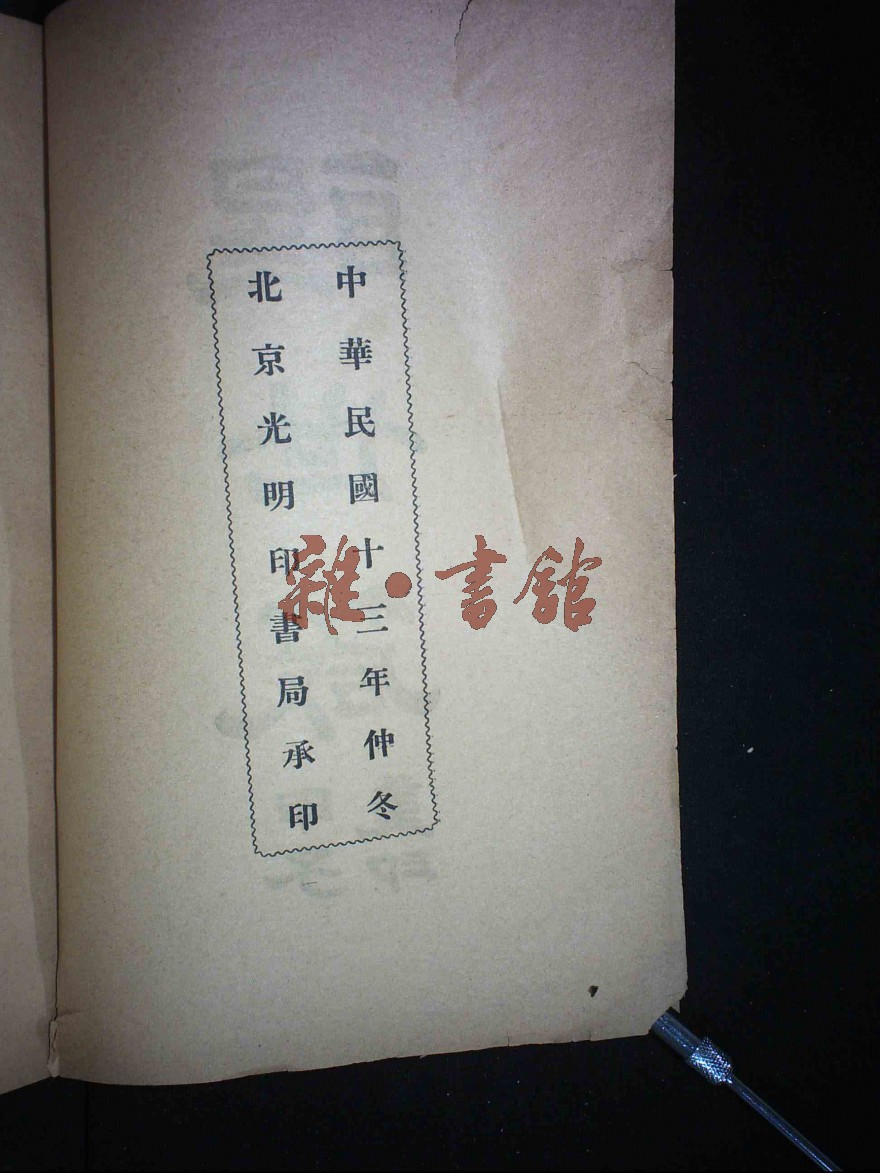 中華民國十三年仲冬
北京光明印書局承印
雜·書館